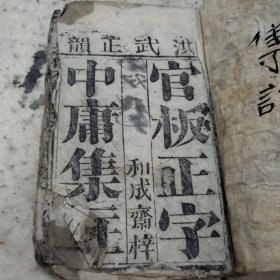 洪武正韻
官板正字
和成齋梓
中庸集註